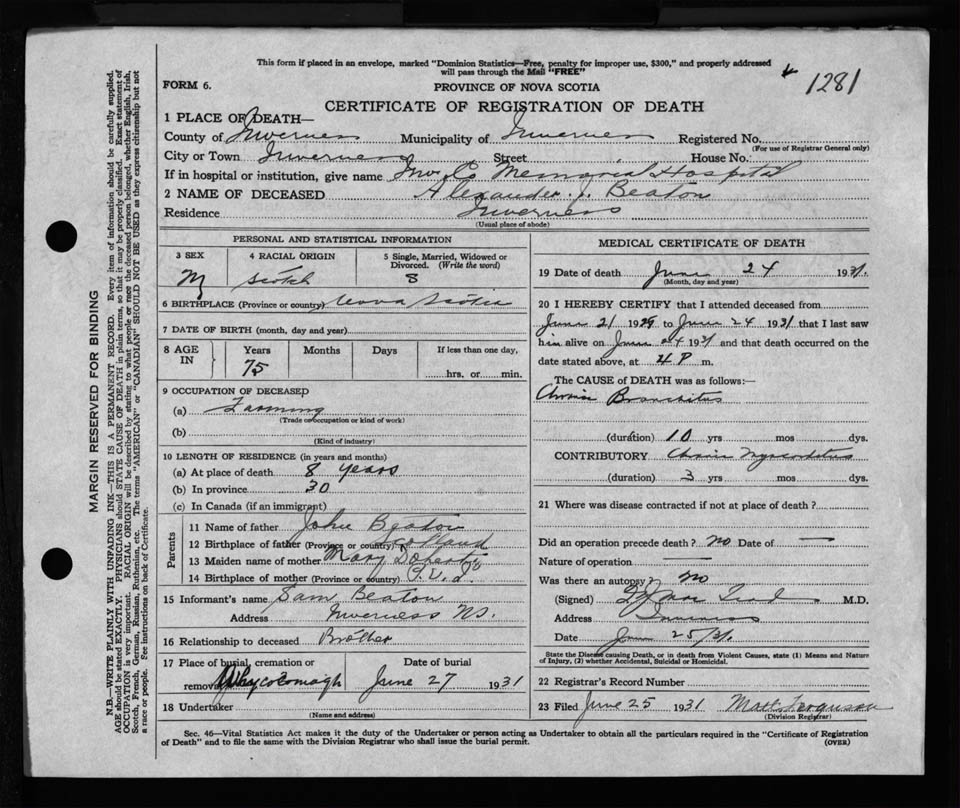 This form if placed in an envelope, marked "Dominion Statistics—Free, penalty for improper use, $300," and properly addressed
will pass through the Mail "FREE"
1281
FORM 6.
PROVINCE OF NOVA SCOTIA
CERTIFICATE OF REGISTRATION OF DEATH
1 PLACE OF DEATH—
County of Inverness Municipality of Inverness Registered No.
(For use of Registrar General only)
City or Town Inverness Street House No.:
If in hospital or institution, give name Inv. Co Memorial Hospital
2 NAME OF DECEASED Alexander J. Beaton
Residence Inverness
(Usual place of abode)
PERSONAL AND STATISTICAL INFORMATION
3 SEX 4 RACIAL ORIGIN 5 Single, Married, Widowed or
Divorced. (Write the word)
M Scotch S
6 BIRTHPLACE (Province or country) Nova Scotia
7 DATE OF BIRTH (month, day and year)
8 AGE IN Years Months Days If less than one day,
75 hrs. or min.
9 OCCUPATION OF DECEASED
(a) Farming
(Trade or occupation or kind of work)
(b)
(Kind of industry)
10 LENGTH OF RESIDENCE (in years and months)
(a) At place of death 8 years
(b) In province 30
(c) In Canada (if an immigrant)
Parents
11 Name of father John Beaton
12 Birthplace of father (Province or country) Scotland
13 Maiden name of mother Mary
14 Birthplace of mother (Province or country) P.E.I.
15 Informant's name Sam Beaton
Address Inverness NS.
16 Relationship to deceased Brother
17 Place of burial, cremation or Date of burial
removal Whycocomagh June 27 1931
18 Undertaker
(Name and address)
MEDICAL CERTIFICATE OF DEATH
19 Date of death June 24 1931.
(Month, day and year)
20 I HEREBY CERTIFY that I attended deceased from
June 21 1929 to June 24 1931 that I last saw
him alive on June 24 1931 and that death occurred on the
date stated above, at 4 P m.
The CAUSE of DEATH was as follows:—
Chronic Bronchitis
(duration) 10 yrs mos dys.
CONTRIBUTORY Chronic Myocarditis
(duration) 3 yrs mos dys.
21 Where was disease contracted if not at place of death?
Did an operation precede death? no Date of —
Nature of operation —
Was there an autopsy? no
(Signed) M.D.
Address Inverness
Date June 25/31.
State the Disease causing Death, or in death from Violent Causes, state (1) Means and Nature
of Injury, (2) whether Accidental, Suicidal or Homicidal.
22 Registrar's Record Number
23 Filed June 25 1931 Matt Ferguson
(Division Registrar)
Sec. 46—Vital Statistics Act makes it the duty of the Undertaker or person acting as Undertaker to obtain all the particulars required in the "Certificate of Registration
of Death" and to file the same with the Division Registrar who shall issue the burial permit. (OVER)
MARGIN RESERVED FOR BINDING
N.B.—WRITE PLAINLY WITH UNFADING INK—THIS IS A PERMANENT RECORD. Every item of information should be carefully supplied.
AGE should be stated EXACTLY. PHYSICIANS should STATE CAUSE OF DEATH in plain terms, so that it may be properly classified. Exact statement of
OCCUPATION is very important. RACIAL ORIGIN will be described by stating to what people or race the deceased person belonged, whether English, Irish,
Scotch, French, German, Russian, Ruthenian, etc. The terms "AMERICAN" or "CANADIAN" SHOULD NOT BE USED as they express citizenship but not
a race or people. See instructions on back of Certificate.